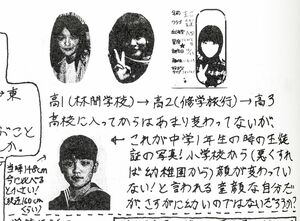 →東
高1(林間学校)→高2(修学旅行)→高3
高校に入ってからはあまり変わってないが、
おこと
か。
←これが中学1年生の時の生徒
証の写真!小学校から(悪くれば
は幼稚園から)顔が変わってい
ない!と言われる童顔な自分だ
が、さすがに幼いのではないだろうか?
当時148cm
今に比べる
と小さい!
(現在160cm
くらい)